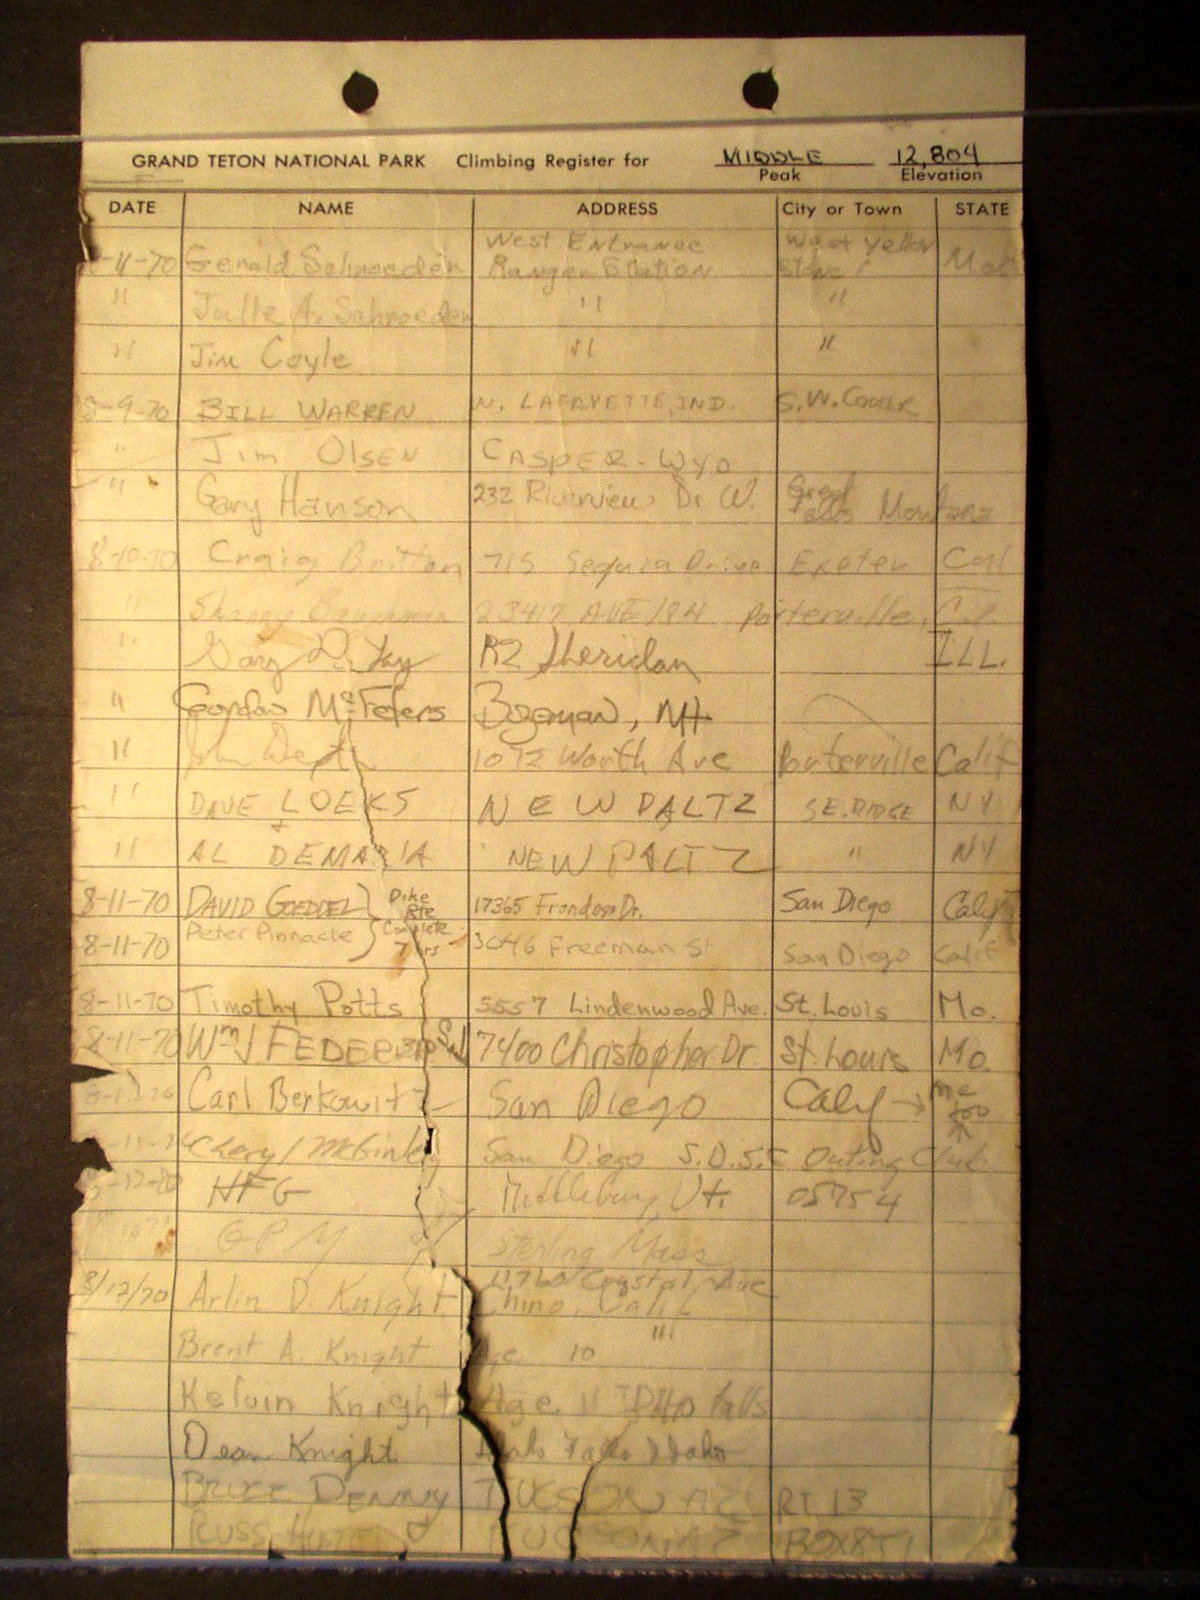 GRAND TETON NATIONAL PARK Climbing Register for MIDDLE 12,804
Peak Elevation
DATE NAME ADDRESS City or Town STATE
West Entrance West Yellow
-11-70 Gerald Schroeder Ranger Station Stone
" Julie A. Schroeder " "
" Jim Coyle " "
8-9-70 BILL WARREN W. LAFAYETTE, IND. S.W. Couir
" Jim OLSEN CASPER - WYO
" Gary Hanson 232 Riverview Dr W. Great Falls Montana
8-10-70 Craig Britton 715 Sequia Drive Exeter Cal
" 23417 AVE 184 Porterville, Cal.
" Gary R2 Sheridan ILL.
" Gordon McFeters Bozeman, Mt.
" John 1072 Worth Ave Porterville Calif
" DAVE LOEKS NEW PALTZ S.E. RIDGE NY
+
" AL DEMARIA NEW PALTZ " NY
8-11-70 DAVID GOEDDEL } Dike Rte 17365 Frondoso Dr. San Diego Calif
8-11-70 Peter Pinnacle } Complete 7 hrs 3046 Freeman St San Diego Calif
8-11-70 Timothy Potts 5557 Lindenwood Ave. St. Louis Mo.
8-11-70 Wm J FEDERER SJ 7400 Christopher Dr St. Louis Mo.
Carl Berkowitz San Diego Calif → me too
-11- Cheryl McGinley San Diego S.D.S.C Outing Club
-12- HFG Middlebury, Vt. 05754
GPM Sterling Mass
8/12/70 Arlin D. Knight 11760 Crystal Ave
Chino, Calif
Brent A. Knight Age 10 "
Kelvin Knight Age 11 IDAHO Falls
Dean Knight Idaho Falls Idaho
BRUCE DENNY TUCSON AZ RT 13
RUSS TUCSON AZ BOX 851